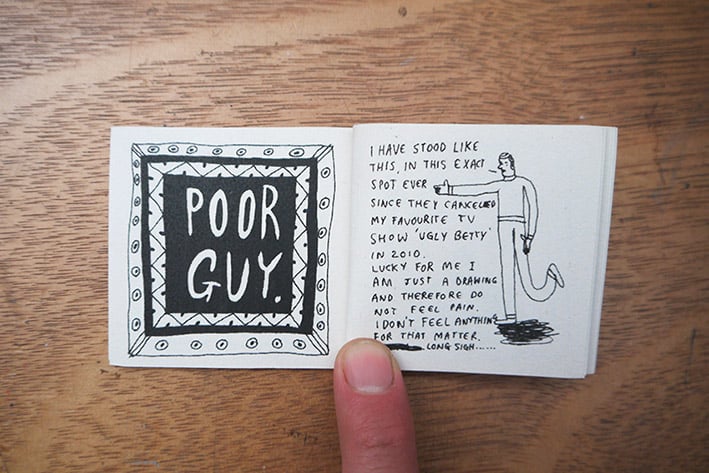 POOR
GUY.
I HAVE STOOD LIKE
THIS, IN THIS EXACT
SPOT EVER
SINCE THEY CANCELLED
MY FAVOURITE TV
SHOW 'UGLY BETTY'
IN 2010.
LUCKY FOR ME I
AM JUST A DRAWING
AND THEREFORE DO
NOT FEEL PAIN.
I DON'T FEEL ANYTHING
FOR THAT MATTER.
LONG SIGH......